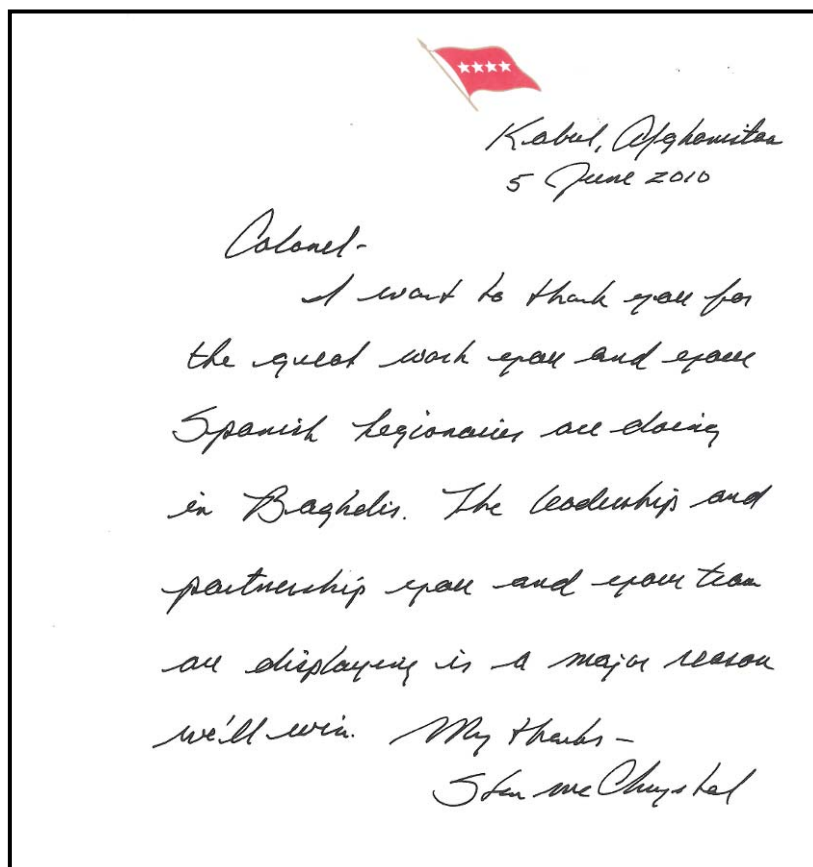 Kabul, Afghanistan
5 June 2010
Colonel-
I want to thank you for
the great work you and your
Spanish Legionaries are doing
in Baghdis. The leadership and
partnership you and your team
are displaying is a major reason
we'll win. My thanks -
Stan McChrystal